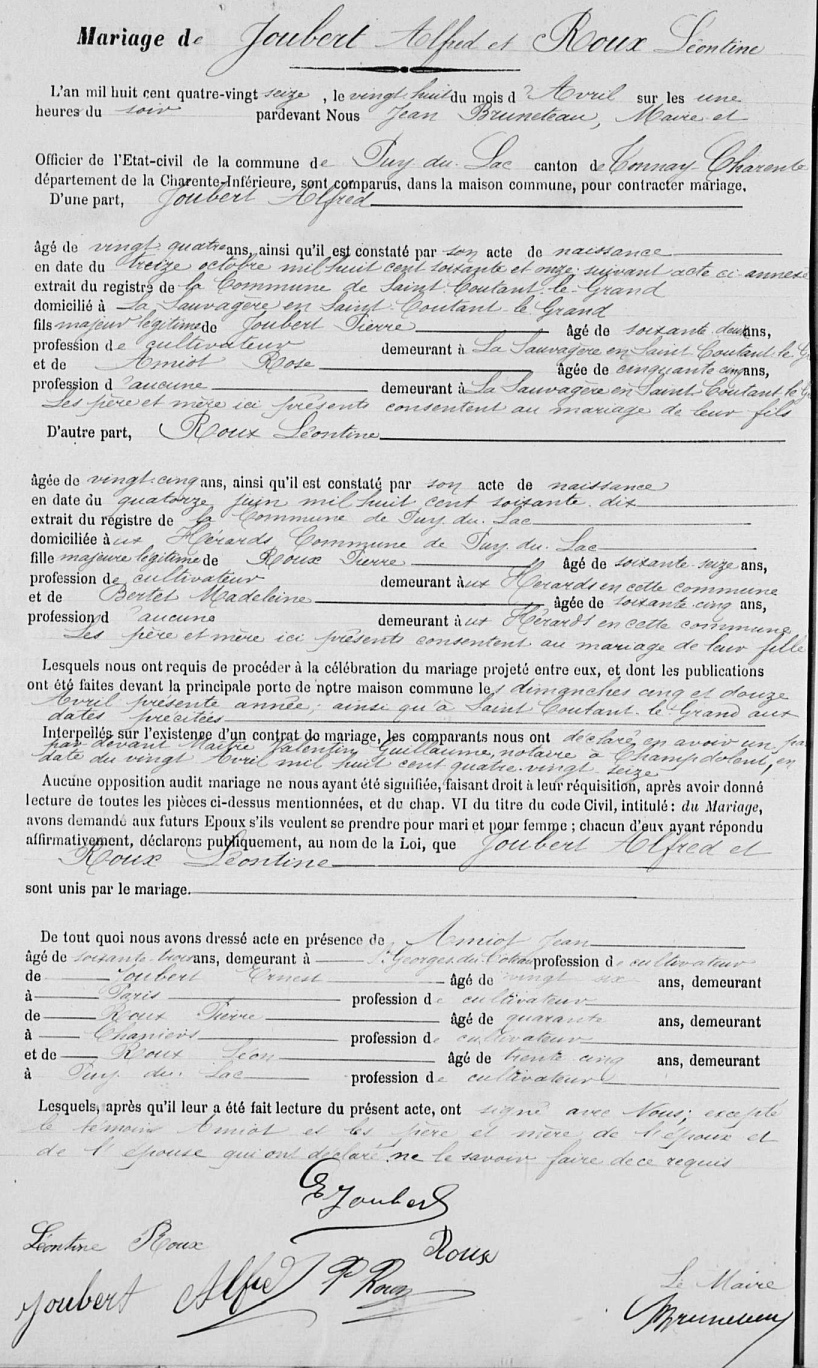 Mariage de Joubert Alfred et Roux Léontine
L'an mil huit cent quatre-vingt seize, le vingt huit du mois d'Avril sur les une
heures du soir pardevant Nous Jean Bruneteau, Maire et
Officier de l'Etat-civil de la commune de Puy du Lac canton de Tonnay-Charente
département de la Charente-Inférieure, sont comparus, dans la maison commune, pour contracter mariage,
D'une part, Joubert Alfred
âgé de vingt quatre ans, ainsi qu'il est constaté par son acte de naissance
en date du treize octobre mil huit cent soixante et onze suivant acte ci annexé
extrait du registre de la Commune de Saint-Coutant-le-Grand
domicilié à La Sauvagère en Saint-Coutant-le-Grand
fils majeur légitime de Joubert Pierre âgé de soixante deux ans,
profession de cultivateur demeurant à La Sauvagère en Saint Coutant le Gr
et de Amiot Rose âgée de cinquante cinq ans,
profession d'aucune demeurant à La Sauvagère en Saint Coutant le Gr
Les père et mère ici présents consentent au mariage de leur fils
D'autre part, Roux Léontine
âgée de vingt-cinq ans, ainsi qu'il est constaté par son acte de naissance
en date du quatorze juin mil huit cent soixante dix
extrait du registre de la Commune de Puy du Lac
domiciliée aux Hérards Commune de Puy du Lac
fille majeure légitime de Roux Pierre âgé de soixante-seize ans,
profession de cultivateur demeurant aux Hérards en cette commune
et de Bertet Madeleine âgée de soixante cinq ans,
profession d'aucune demeurant aux Hérards en cette commune
Les père et mère ici présents consentent au mariage de leur fille
Lesquels nous ont requis de procéder à la célébration du mariage projeté entre eux, et dont les publications
ont été faites devant la principale porte de notre maison commune les dimanches cinq et douze
Avril présente année, ainsi qu'à Saint Coutant-le-Grand aux
dates précitées
Interpellés sur l'existence d'un contrat de mariage, les comparants nous ont déclaré en avoir un
par devant Maître Valentin Guillaume, notaire à Champdolent, en
date du vingt Avril mil huit cent quatre-vingt seize
Aucune opposition audit mariage ne nous ayant été signifiée, faisant droit à leur réquisition, après avoir donné
lecture de toutes les pièces ci-dessus mentionnées, et du chap. VI du titre du code Civil, intitulé : du Mariage,
avons demandé aux futurs Epoux s'ils veulent se prendre pour mari et pour femme ; chacun d'eux ayant répondu
affirmativement, déclarons publiquement, au nom de la Loi, que Joubert Alfred et
Roux Léontine
sont unis par le mariage.
De tout quoi nous avons dressé acte en présence de Amiot Jean
âgé de soixante trois ans, demeurant à St Georges du Coteau profession de cultivateur
de Joubert Ernest âgé de vingt six ans, demeurant
à Paris profession de cultivateur
de Roux Pierre âgé de quarante ans, demeurant
à Chaniers profession de cultivateur
et de Roux Léon âgé de trente cinq ans, demeurant
à Puy du Lac profession de cultivateur
Lesquels, après qu'il leur a été fait lecture du présent acte, ont signé avec Nous, excepté
le témoins Amiot et les père et mère de l'époux et
de l'épouse qui ont déclaré ne le savoir faire de ce requis
E Joubert
Léontine Roux Roux
Joubert Alfred P Roux Le Maire
Bruneteau